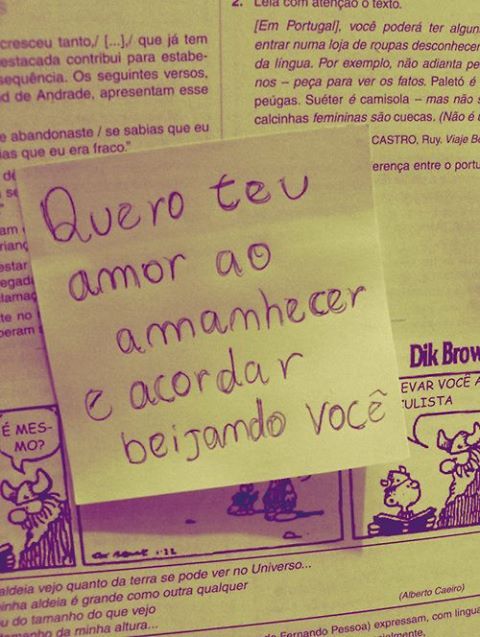 2. Leia com atenção o texto.
[Em Portugal], você poderá ter algum
entrar numa loja de roupas desconhecen
da língua. Por exemplo, não adianta pe
nos – peça para ver os fatos. Paletó é
peúgas. Suéter é camisola – mas não s
calcinhas femininas são cuecas. (Não é u
CASTRO, Ruy. Viaje Be
erença entre o portu
cresceu tanto,/ [...],/ que já tem
destacada contribui para estabe-
sequência. Os seguintes versos,
d de Andrade, apresentam esse
e abandonaste / se sabias que eu
ias que eu era fraco."
Quero teu
amor ao
ammanhecer
e acordar
beijamdo você
Dik Brow
EVAR VOCÊ A
ULISTA
É MES-
MO?
aldeia vejo quanto da terra se pode ver no Universo...
inha aldeia é grande como outra qualquer
u do tamanho do que vejo
tamanho da minha altura...
(Alberto Caeiro)
Fernando Pessoa) expressam, com lingua